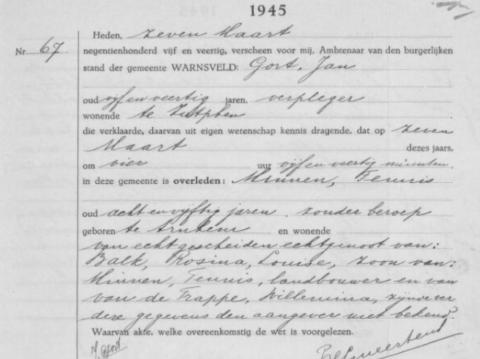 1945
Heden, zeven Maart
Nr 67 negentienhonderd vijf en veertig, verscheen voor mij, Ambtenaar van den burgerlijken
stand der gemeente WARNSVELD: Gort, Jan
oud vijf en veertig jaren, verpleger
wonende te Zutphen
die verklaarde, daarvan uit eigen wetenschap kennis dragende, dat op zeven
Maart dezes jaars,
om vier uur vijf en veertig minuten
in deze gemeente is overleden: Minnen, Teunis
oud acht en vijftig jaren, zonder beroep
geboren te Arnhem en wonende
van echt gescheiden echtgenoot van:
Balk, Rosina, Louise, zoon van:
Minnen, Teunis, landbouwer en van
van de Trappe, Willemina, zijnde
deze gegevens den aangever niet bekend.
Waarvan akte, welke overeenkomstig de wet is voorgelezen.
J Gort